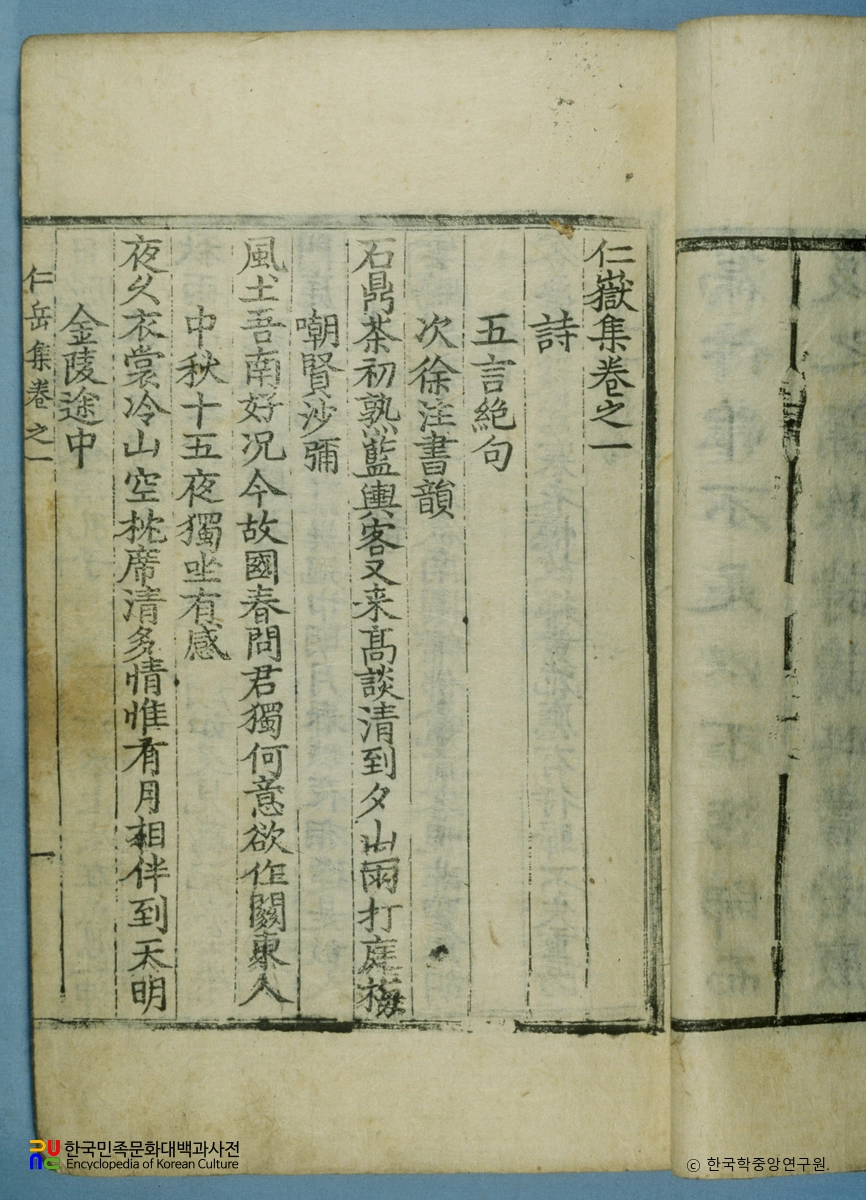 仁嶽集卷之一
詩
五言絶句
次徐注書韻
石鼎茶初熟藍輿客又来高談清到夕山雨打庭梅
嘲賢沙彌
風土吾南好况今故國春問君獨何意欲作關東人
中秋十五夜獨坐有感
夜久衣裳冷山空枕席清多情惟有月相伴到天明
金陵途中
仁岳集卷之一
一
한국민족문화대백과사전
Encyclopedia of Korean Culture
ⓒ 한국학중앙연구원.